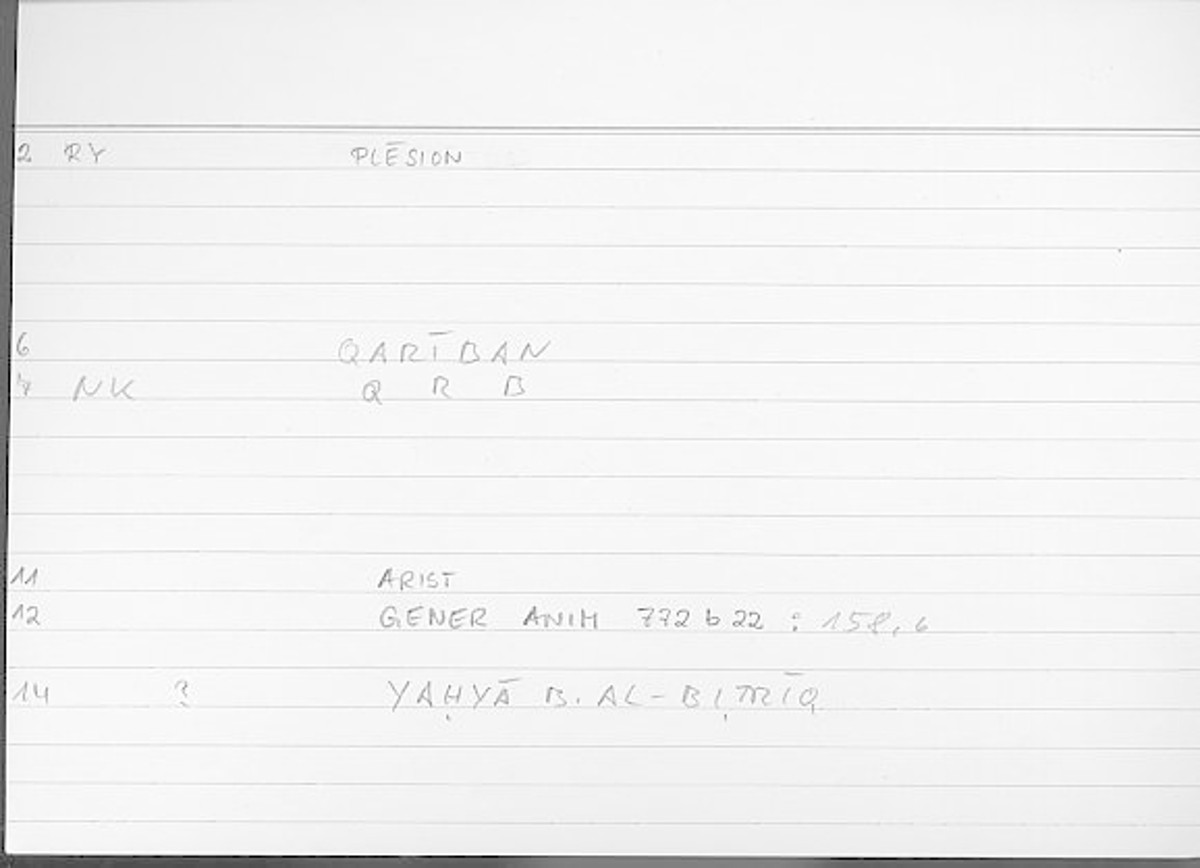 2 RY PLĒSION
6 QARĪBAN
7 NK Q R B
11 ARIST
12 GENER ANIM 772 b 22 : 158, 6
14 ? YAḤYĀ B. AL-BIṬRĪQ